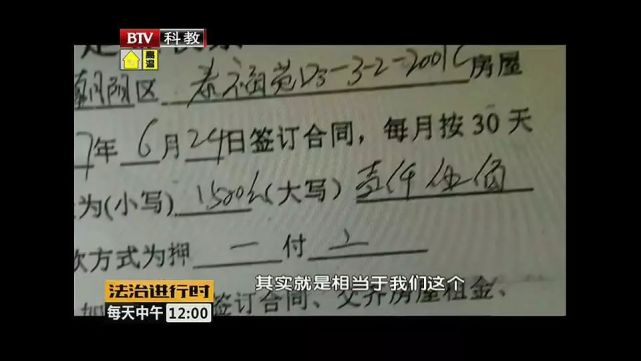 BTV 科教
高温
朝阳区 泰福苑D3-3-2-2001C房屋
7年 6月24日签订合同，每月按30天
为(小写) 1500元(大写) 壹仟伍佰
次方式为押 一 付
其实就是相当于我们这个
法治进行时
签订合同、交齐房屋租金、
每天中午 12:00